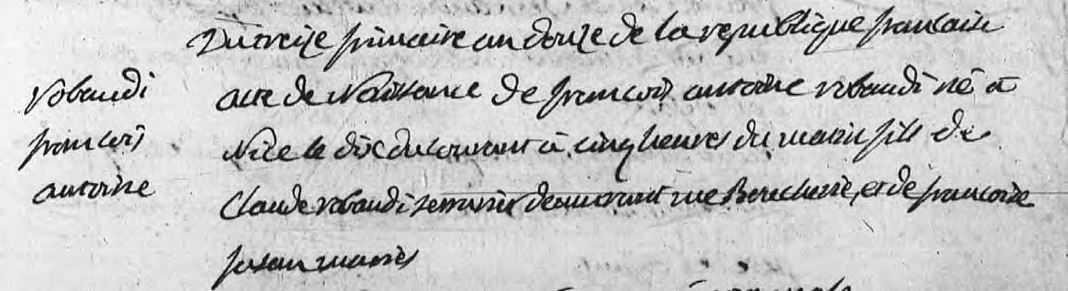 Du treize frimaire an douze de la republique francaise
robaudi
francois
antoine
acte de Naissance de francois antoine robaudi né a
Nice le dix du courant à cinq heures du matin fils de
Claude robaudi serrurier demeurant rue Boucherie, et de francoise
mariés